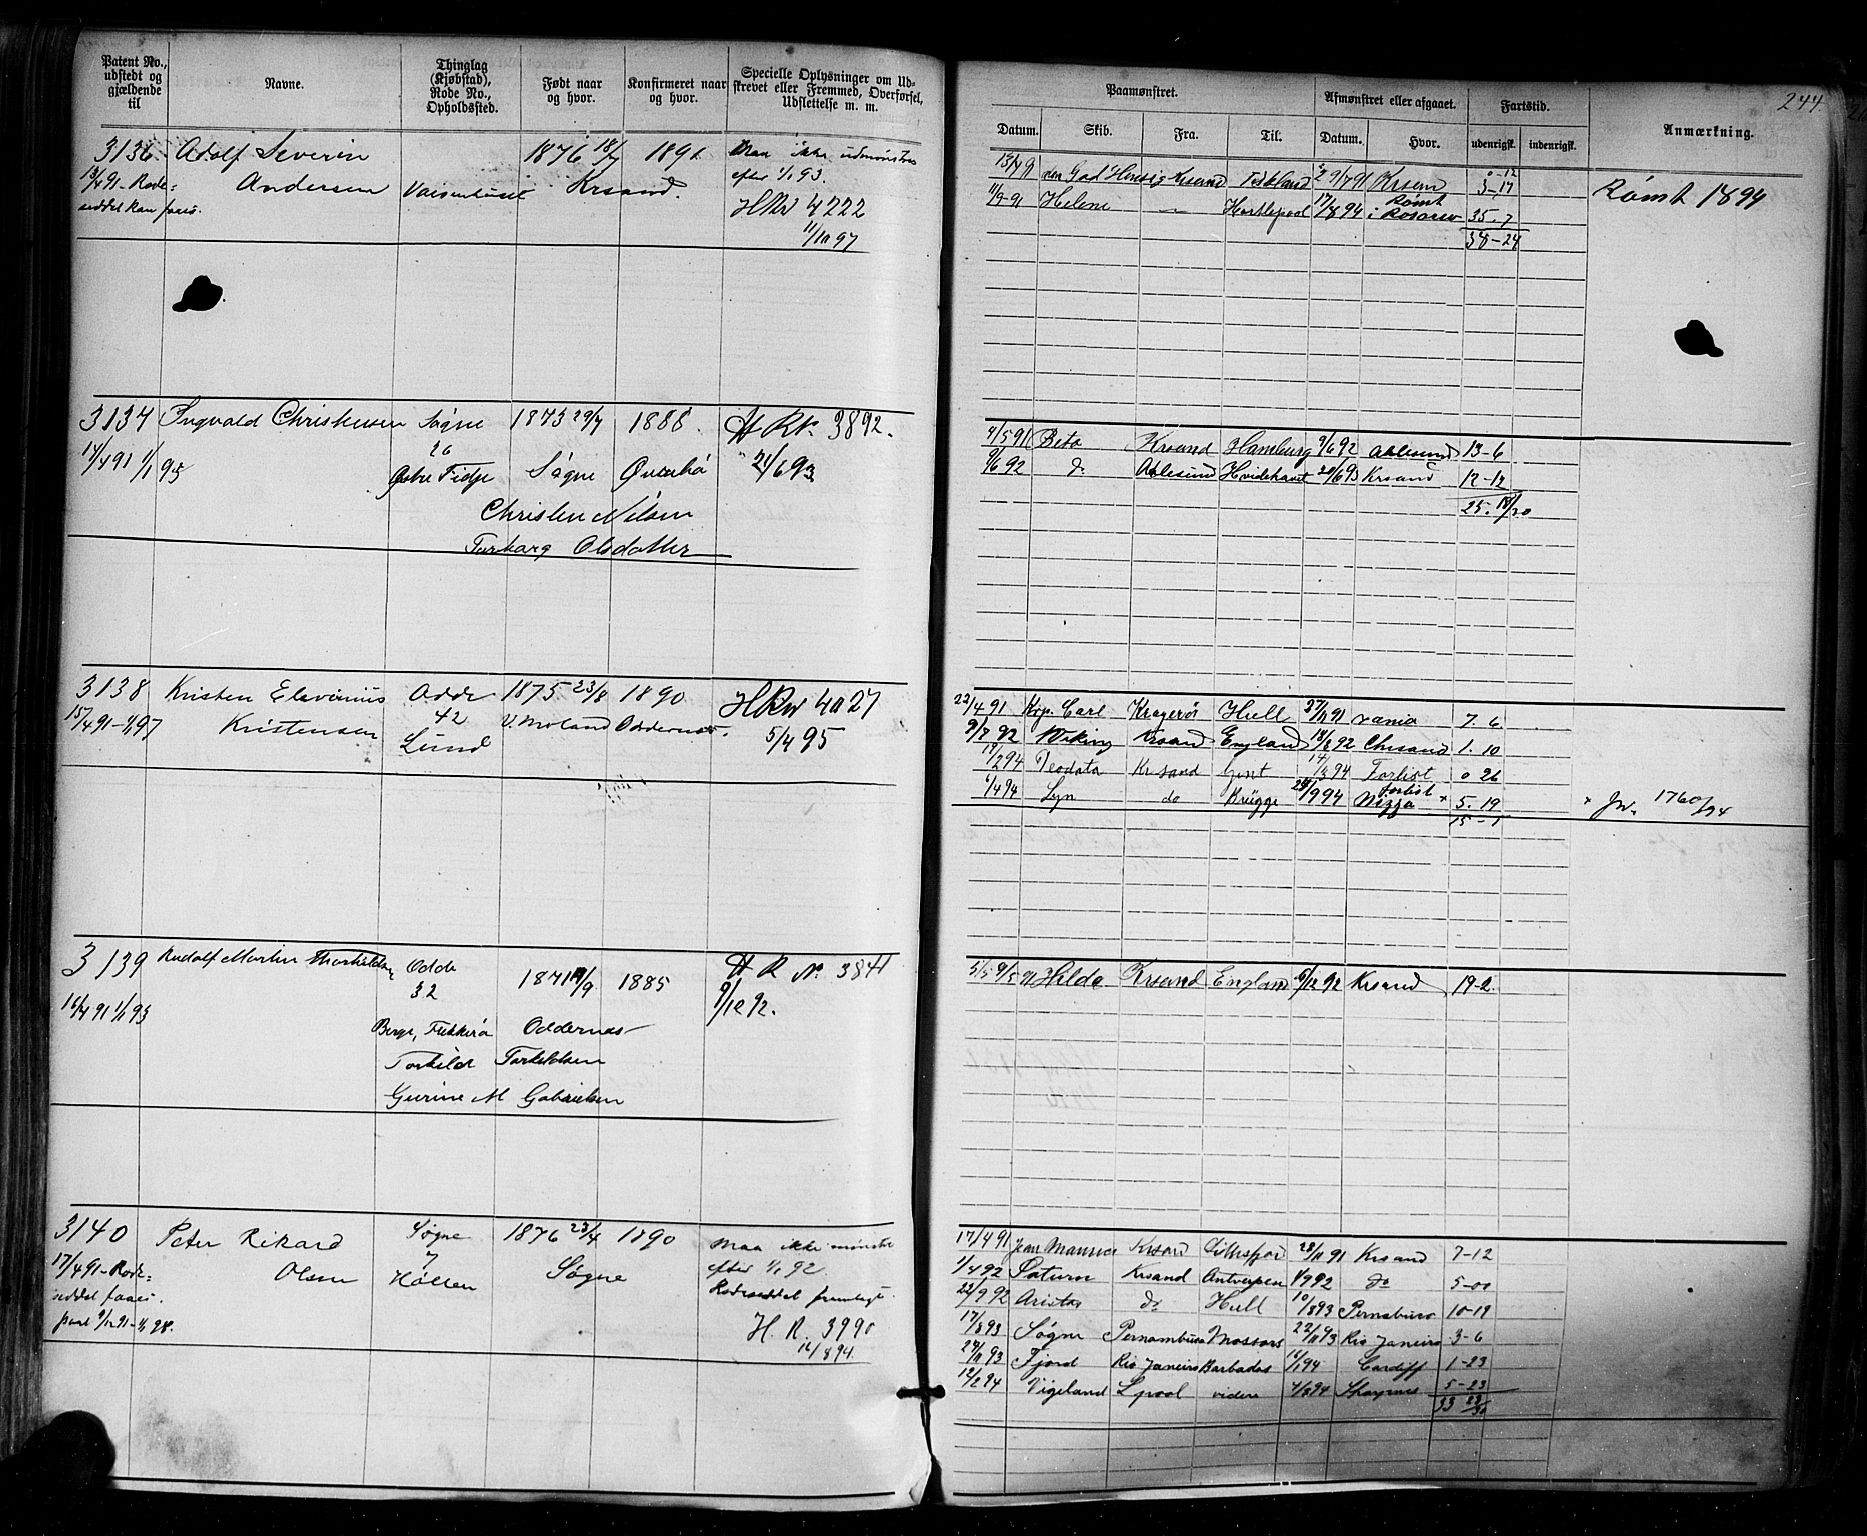 244.
Patent No., udstedt og gjældende til
Navne.
Thinglag (Kjøbstad), Rode No., Opholdssted.
Født naar og hvor.
Konfirmeret naar og hvor.
Specielle Oplysninger om Udskrevet eller Fremmed, Overførsel, Udslettelse m. m.
Paamønstret.
Afmønstret eller afgaaet.
Fartstid.
Anmærkning.
Datum. Skib. Fra. Til. Datum. Hvor. udenrigsk. indenrigsk.
3136 Adolf Severin 1876 18/7 1891. Maa ikke udmønstres
13/4 91 - Rode= Andersen Vaisenhuset Krsand. efter 1/1 93.
seddel kan faaes. HRN 4222
11/10 97
Krsand 9/7 91 Krsand 0-12
3-17
11/9-91 Helene — Hartlepool 17/8 94 Rømt i Rosario 35-7
38-24
Rømt 1894
3137 Ingvald Christensen Søgne 1873 29/7 1888. H R N. 3892.
14/4 91 1/1 95 26 Søgne 21/6 93
Østre Tidje
Christen Nilsen
Torborg Olsdatter
4/5 91 Beta Krsand Hamburg 9/6 92 Aalesund 13-6
9/6 92 do Aalesund Hvidehavet 20/6 93 Krsand 12-12
25. 18/30
3138 Kristen Elevinius Odde 1875 23/8 1890 HRN 4027
15/4 91 - 1/1 97 Kristensen 42 V. Moland Oddernes. 5/4 95
Lund
22/4 91 Kop. Carl Kragerø Hull 27/11 91 7. 6
9/7 92 Viking Krsand England 18/8 92 Chrsand 1. 10
19/2 94 Teodata Krsand Gent 14/3 94 Forlist 0 26
1/4 94 Lyn do Brügge 24/9 94 Forlist Nizza × 5. 19
15-1
× Jn. 1760/94
3139 Rudolf Martin Thorkildsen Odde 1871 19/9 1885 H R N. 3841
16/4 91 1/1 93 32 9/12 92.
Berge, Flekkerø Oddernes
Torkild Torkildsen
Gurine M Gabrielsen
5/5 9/5 91 Hilda Krsand England 9/12 92 Krsand 19-2.
3140 Peter Rikard Søgne 1876 23/4 1890 Maa ikke mønstre
17/4 91 - Rode= Olsen 7 Søgne efter 1/1 92
seddel faaes. Høllen Rodeseddel fremlagt.
H. R. 3990
16/8 94.
17/4 91 Krsand 28/11 91 Krsand 7-12
1/4 92 Saturn Krsand Antwerpen 1/9 92 do 5-00
22/9 92 Aristos do Hull 10/8 93 Pernabuco 10-19
17/8 93 Søgne Pernambuco Mossors 22/11 93 Rio Janeiro 3-6
24/11 93 Fjord Rio Janeiro Barbados 16/1 94 Cardiff 1-23
12/2 94 Vigeland Lpool videre 4/8 94 5-23
33 23/30